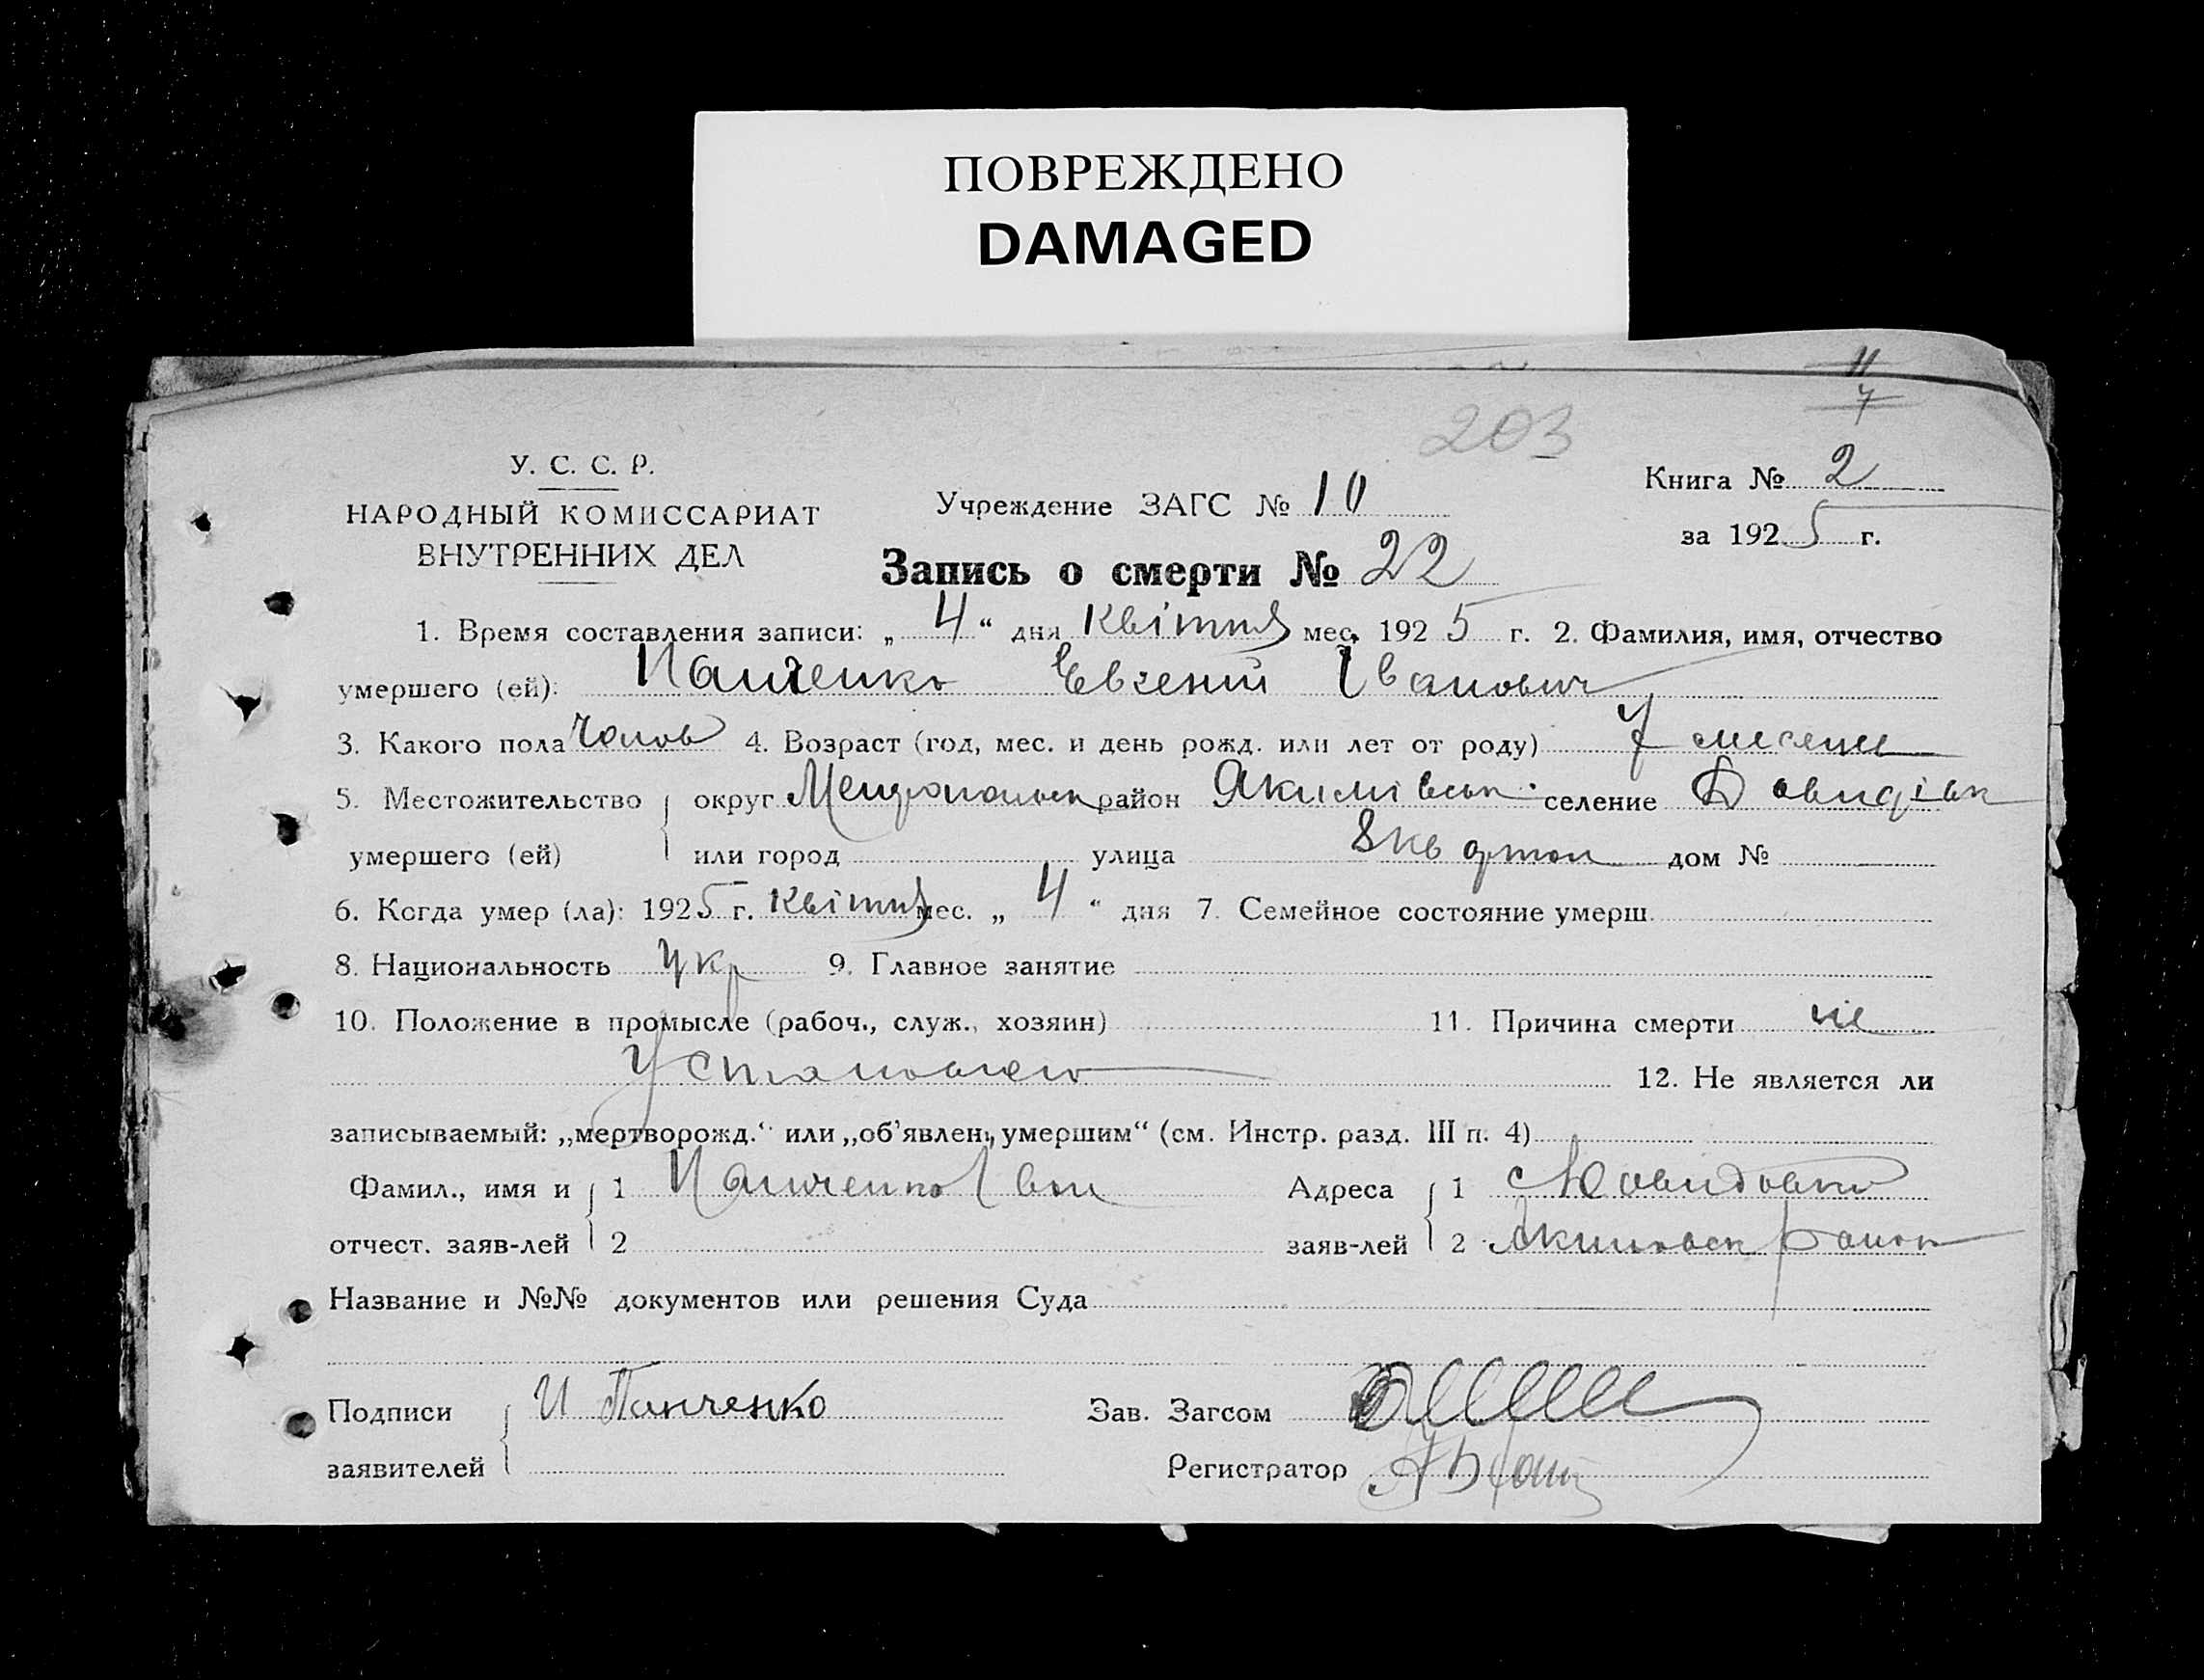 ПОВРЕЖДЕНО
DAMAGED
11
7
203
У. С. С. Р.
НАРОДНЫЙ КОМИССАРИАТ
ВНУТРЕННИХ ДЕЛ
Учреждение ЗАГС № 10
Книга № 2
за 1925 г.
Запись о смерти № 22
1. Время составления записи: „ 4 “ дня Квітня мес. 1925 г. 2. Фамилия, имя, отчество
умершего (ей): Панченко Евгений Іванович
3. Какого пола Чолов 4. Возраст (год, мес. и день рожд. или лет от роду) 7 месяцы
5. Местожительство округ Мелитопольск район Якимівськ. селение Давидівк
умершего (ей) или город улица 8 кв дом №
6. Когда умер (ла): 1925 г. Квітня мес. „ 4 “ дня 7. Семейное состояние умерш.
8. Национальность Укр 9. Главное занятие
10. Положение в промысле (рабоч., служ., хозяин) 11. Причина смерти не
Установлен 12. Не является ли
записываемый: „мертворожд.“ или „об’явлен„ умершим“ (см. Инстр. разд. III п. 4)
Фамил., имя и 1 Панченко Іван Адреса 1 с Давидовка
отчест. заяв-лей 2 заяв-лей 2 Акимовск район
Название и №№ документов или решения Суда
Подписи И Панченко Зав. Загсом
заявителей Регистратор